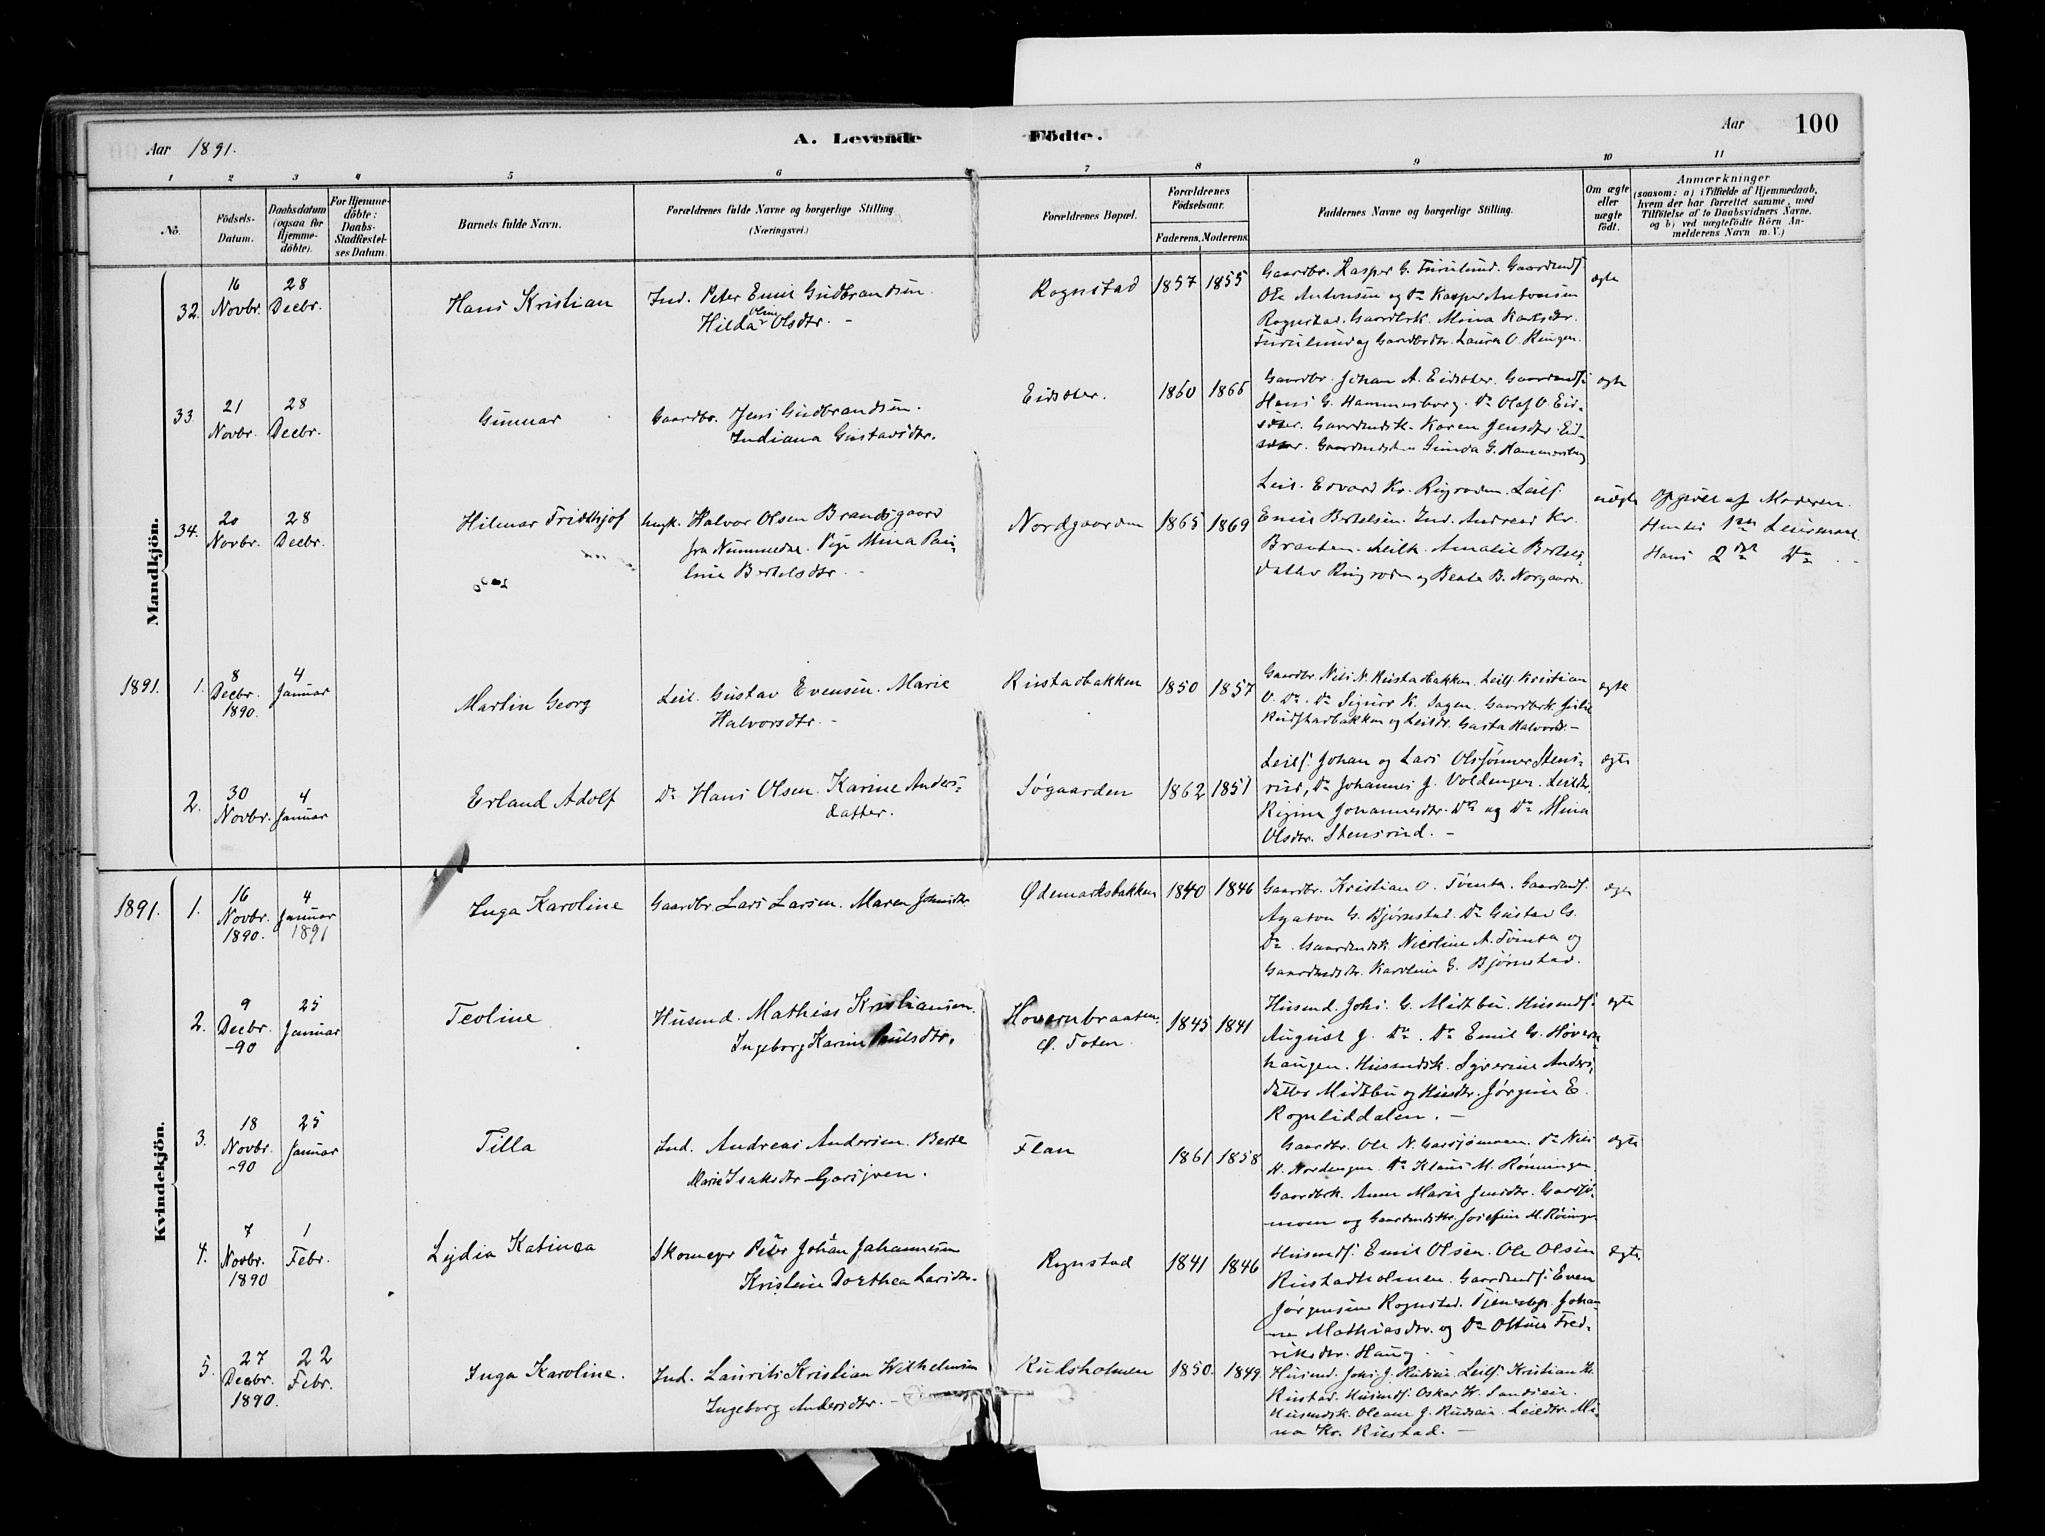 Aar 1891. A. Levende Fødte. Aar 100
1 2 3 4 5 6 7 8 9 10 11
No. Födsels-Datum. Daabsdatum (ogsaa for Hjemme-döbte). For Hjemme-döbte: Daabs-Stadfæstel-ses Datum. Barnets fulde Navn. Forældrenes fulde Navne og borgerlige Stilling (Næringsvei.) Forældrenes Bopæl. Forældrenes Födselsaar. Faderens. Moderens. Faddernes Navne og borgerlige Stilling. Om ægte eller uægte födt. Anmærkninger (saasom: a) i Tilfælde af Hjemmedaab, hvem der har forrettet samme, med Tilföielse af to Daabsvidners Navne, og b) ved uægtefödte Börn An-melderens Navn m. V.)
Mandkjön.
32. 16 Novbr. 28 Decbr. Hans Kristian Ind. Peter Emil Gudbrandsen. Hilda Oline Olsdtr. - Rognstad 1857 1855 Gaardbr. Kasper G. Furulund. Gaardmdsf.
Ole Antonsen og Do Kasper Antonsen
Rognstad. Gaardbrk. Mina Karlsdtr.
Furulund og Gaardbrdtr. Laura O. Ringen. ægte
33. 21 Novbr. 28 Decbr. Gunnar Gaardbr. Jens Gudbrandsen. Indiana Gustavsdtr. Eidsster. 1860 1866 Gaardbr. Johan A. Eidsster. Gaardmdsf.
Hans G. Hammersborg. Do Olaf O. Eid-
ster. Gaardmdsk. Karen Jensdtr. Eid-
ster. Gaardmdsdtr. Gunda G. Hammersborg ægte
34. 20 Novbr. 28 Decbr. Hilmar Fridthjof Ungk. Halvor Olsen Brandsgaard
fra Nummedal. Pige Mina Pau-
line Bertelsdtr. - Nordgaarden 1865 1869 Leil. Edvard Kr. Ringroden. Leilf.
Emil Bertelsen. Ind. Andreas Kr.
Braaten. Leilk. Amalie Bertels-
datter Ringroden og Beate B. Norgaarden uægte Opgivet af Moderen.
Hendes 1ste Leiermaal.
Hans 2det Do
1891. 1. 8 Decbr. 1890. 4 Januar Martin Georg Leil. Gustav Evensen. Marie
Halvorsdtr. - Rustadbakken 1850 1857 Gaardbr. Nils N. Rustadbakken. Leilf. Kristian
O. Do. Do Sigurd K. Sagen. Gaardbrk. Julie
Rudstadbakken og Leildtr. Gusta Halvorsd. - ægte
2. 30 Novbr. 4 Januar Erland Adolf Do Hans Olsen. Karine Anders-
datter. Søgaarden 1862 1851 Leilf. Johan og Lars Olssønner Stens-
rud, Do Johannes J. Voldengen. Leildtr.
Regine Johannesdtr. Do og Do Mina
Olsdtr. Stensrud. - ægte
Kvindekjön.
1891. 1. 16 Novbr. 1890. 4 Januar 1891 Inga Karoline Gaardbr. Lars Larsen. Maren Johnsdtr Ødemarksbakken 1840 1846 Gaardbr. Kristian O. Tømta. Gaardmdsf.
Agaton G. Bjørnstad. Do Gustav G.
Do. Gaardmdsk. Nicoline A. Tømta og
Gaardmdsdtr. Karoline G. Bjørnstad. ægte
2. 9 Decbr. -90 25 Januar Teoline Husmd. Mathias Kristiansen.
Ingeborg Karine Paulsdtr. Hovernbraaten.
Ø. Toten. 1845 1841 Husmd. Johs. G. Midtbu. Husmdsf.
August J. Do. Do Emil G. Høvern-
haugen. Husmdsk. Syverine Anders-
datter Midtbu og Husdtr. Jørgine E.
Rognliddalen. - ægte
3. 18 Novbr. -90 25 Januar Tilla Ind. Andreas Andersen. Berte
Marie Isaksdtr Garsjøen. Flan 1861 1858 Gaardbr. Ole N. Garsjømoen. Do Nils
N. Nordengen. Do Klaus M. Rønningen.
Gaardbrk. Anne Marie Jensdtr. Garsjø-
moen og Gaardmdsdtr. Josefine M. Røningen ægte
4. 7 Novbr. 1890 1 Febr. Lydia Katinca Skomager Peter Johan Johannesen
Kristine Dorthea Larsdtr. Rognstad 1841 1846 Husmdsf. Emil Olsen. Ole Olsen
Rustadholmen. Gaardmdsf. Even
Jørgensen Rognstad. Tjenestep. Johan-
ne Mathiasdtr. og Do Oline Fred-
riksdtr. Haug. ægte
5. 27 Decbr. 1890. 22 Febr. Inga Karoline. Ind. Laurits Kristian Wilhelmsen
Ingeborg Andersdtr. - Rudsholmen 1850. 1849 Husmd. Johs. J. Rudseie. Leilf. Kristian H.
Rustad. Husmdsf. Oskar H. Sandseie.
Husmdsk. Oleane J. Rudseie. Leildtr. Mi-
na Kr. Rustad. -